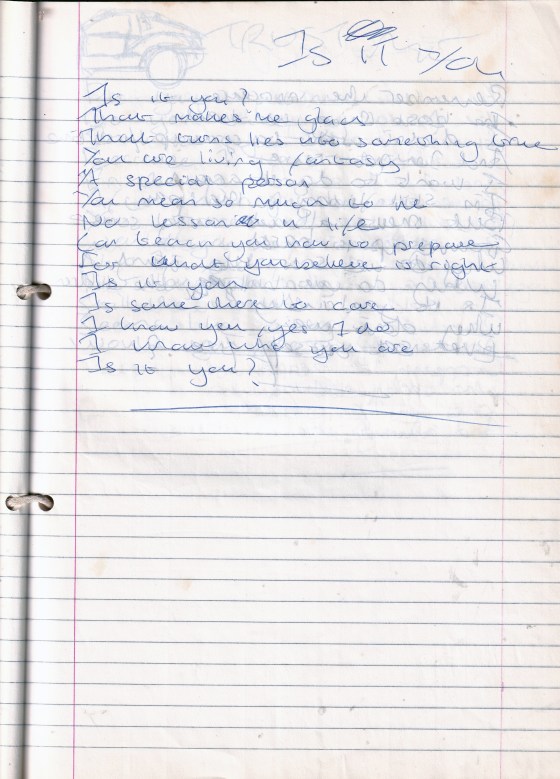 Is it you
Is it you?
That makes me glad
That turns lies into something true
You are living fantasy
A special person
You mean so much to me
No lesson in life
Can teach you how to prepare
For what you believe is right
Is it you
Is some here to care
I know you, yes I do
I know who you are
Is it you?